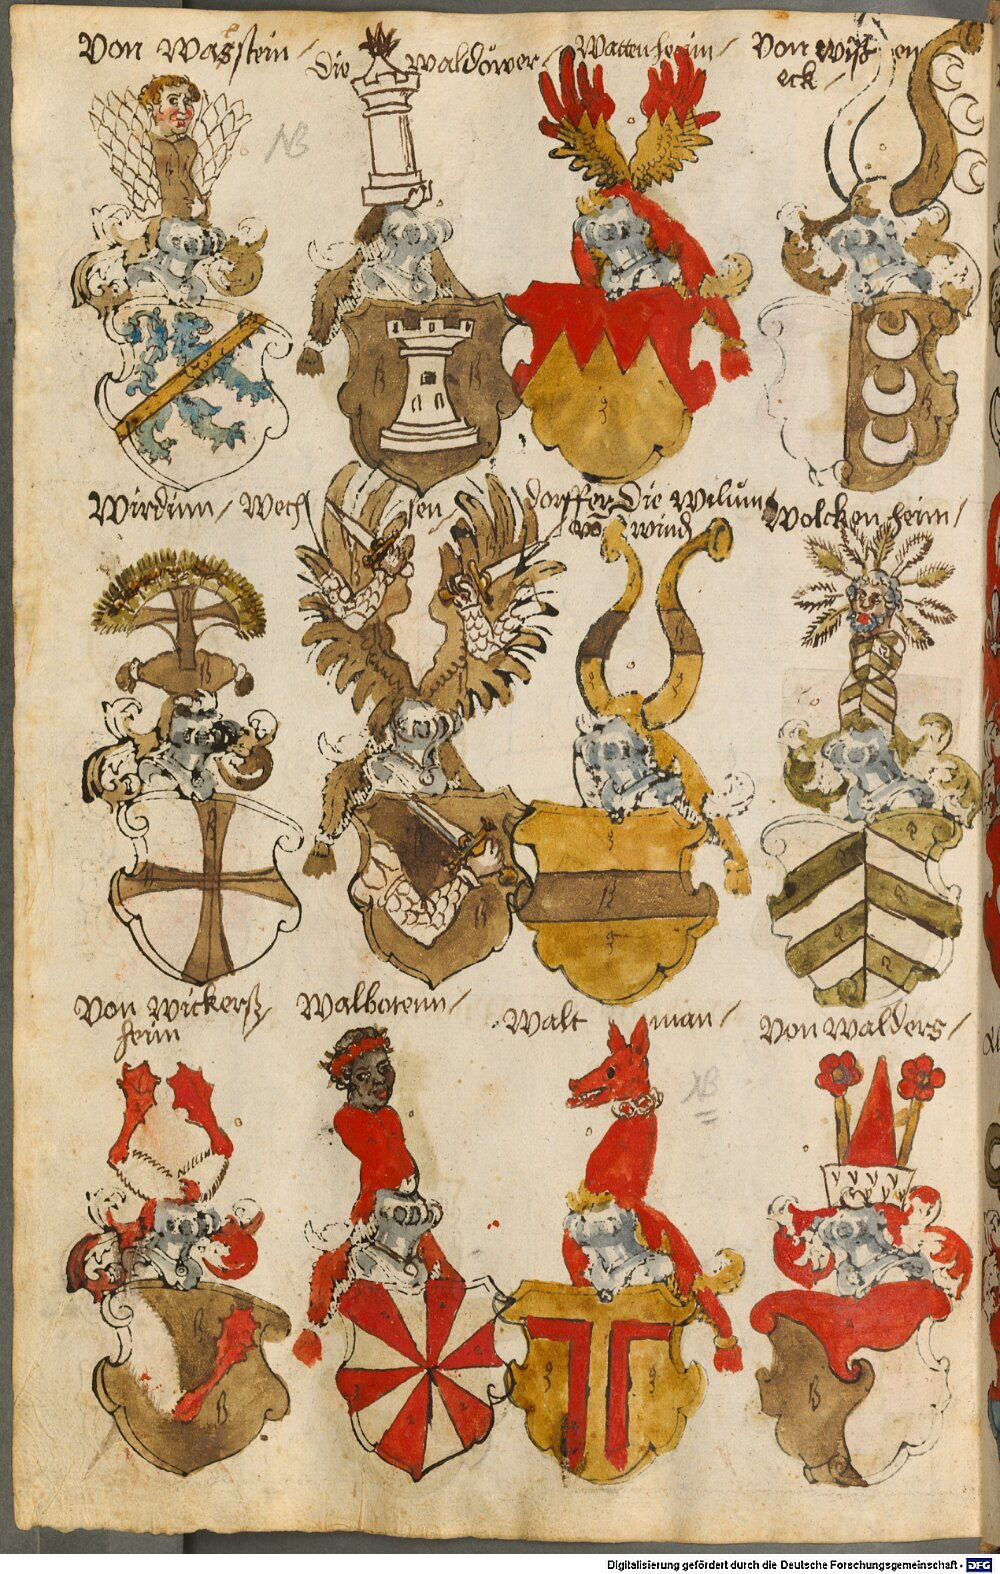 Von Wasstein /
Die Waldower /
Wattenheim /
Von Wisten
eck /
NB
Wirdinn / Wechsendorffer
Die Wilum
Wolckenheim /
Von Wickersz
heim
Walbotenn /
Waltman /
Von Walders /
NB
Digitalisierung gefördert durch die Deutsche Forschungsgemeinschaft - DFG